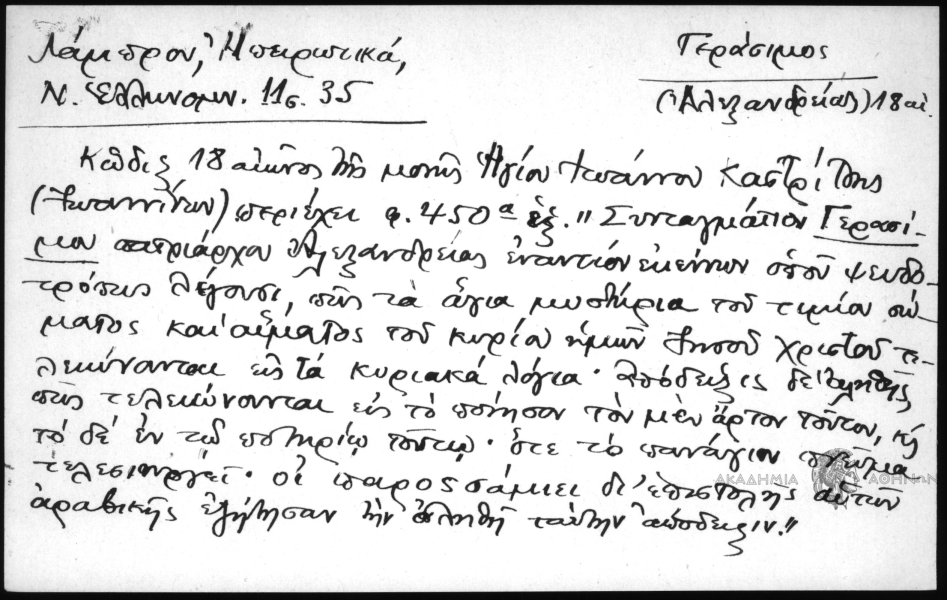 Λάμπρου, Ἠπειρωτικά,
Ν. Ἑλληνομν. 11σ. 35
Γεράσιμος
(Ἀλεξανδρείας) 18 αἰ.
Κῶδιξ 18 αἰῶνος τῆς μονῆς Ἁγίου Ἰωάννου Καστρίτσης
(Ἰωαννίνων) περιέχει φ. 450α ἑξ. "Συνταγμάτιον Γερασί-
μου πατριάρχου Ἀλεξανδρείας ἐναντίον ἐκείνων ὁποῦ ψευδο-
τρόπως λέγουσι, πῶς τὰ ἅγια μυστήρια τοῦ τιμίου σώ-
ματος καὶ αἵματος τοῦ κυρίου ἡμῶν Ἰησοῦ Χριστοῦ τε-
λειώνονται εἰς τὰ κυριακὰ λόγια· ἀπόδειξις δὲ ἀληθὴς
πῶς τελειώνονται εἰς τὸ ποίησον τὸν μὲν ἄρτον τοῦτον, κὴ
τὸ δὲ ἐν τῷ ποτηρίῳ τούτῳ· ὅτε τὸ πανάγιον πνεῦμα
τελεσιουργεῖ· οἱ δι' ἐπιστολῆς αὐτῶν
ἀραβικῆς ἐζήτησαν τὴν ἀληθῆ ταύτην ἀπόδειξιν."
ΑΚΑΔΗΜΙΑ ΑΘΗΝΩΝ